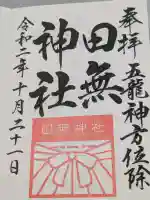 奉拝 五龍神方位除
田無
神社
令和二年十月二十一日
田無神社